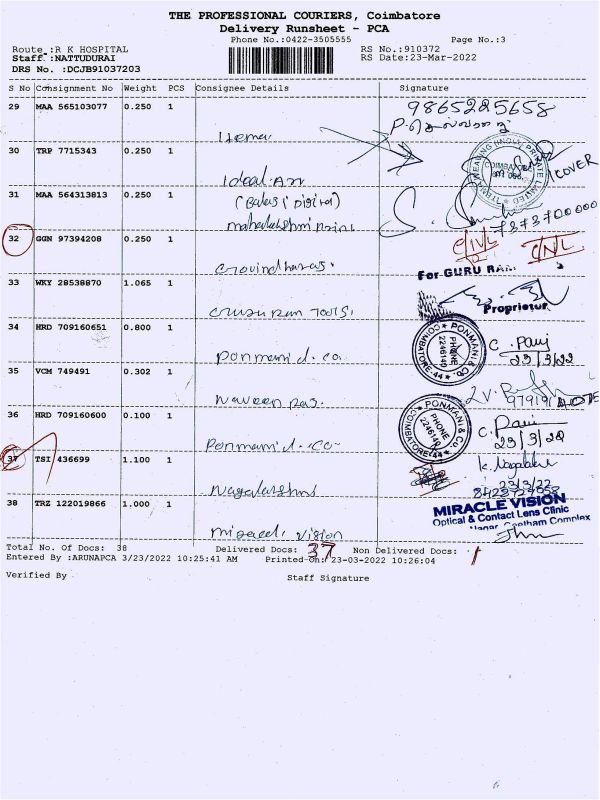 THE PROFESSIONAL COURIERS, Coimbatore
Delivery Runsheet - PCA
Phone No.:0422-3505555 Page No.:3
Route :R K HOSPITAL RS No.:910372
Staff :NATTUDURAI RS Date:23-Mar-2022
DRS No. :DCJB91037203
S No Consignment No Weight PCS Consignee Details Signature
29 MAA 565103077 0.250 1
9865225658
Hema
30 TRP 7715343 0.250 1
COIMBATORE
COVER
Ideal Arr
31 MAA 564313813 0.250 1
(Balaji Digital)
mahalakshmi
7373700000
32 GGN 97394208 0.250 1
C/NL
Govindharas.
For GURU RAM
33 WKY 28538870 1.065 1
Proprietor
Guru ram Tools.
34 HRD 709160651 0.800 1
PONMANI & CO.
PHONE
2246140
COIMBATORE-44
23/3/22
Ponmani d. co.
35 VCM 749491 0.302 1
Naveen ras.
36 HRD 709160600 0.100 1
PONMANI & CO.
PHONE
2246140
COIMBATORE-44
23/3/22
Ponmani d. co
37 TSI 436699 1.100 1
K. Nagalakshmi
23/3/22
Nagalakshmi
38 TRZ 122019866 1.000 1
MIRACLE VISION
Optical & Contact Lens Clinic
Complex
miracel. vision
Total No. Of Docs: 38 Delivered Docs: 37 Non Delivered Docs: 1
Entered By :ARUNAPCA 3/23/2022 10:25:41 AM Printed On: 23-03-2022 10:26:04
Verified By Staff Signature